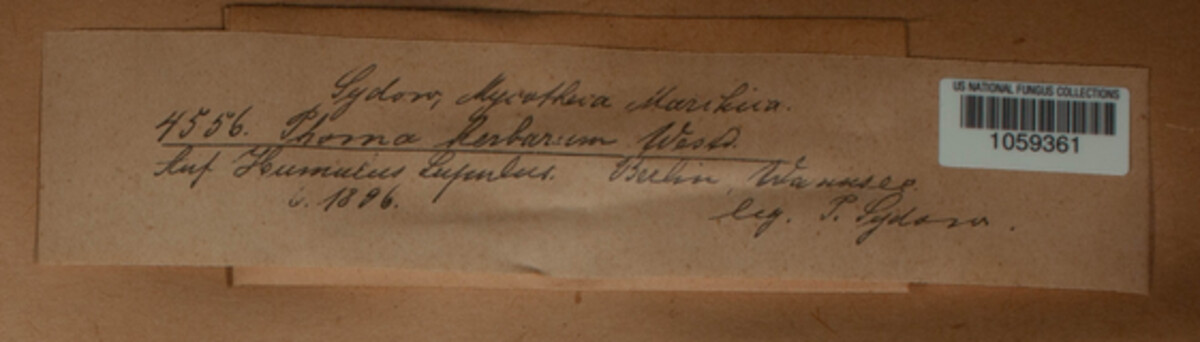 Sydow, Mycotheca Marchica.
4556. Phoma Herbarum West.
Auf Humulus Lupulus. Berlin, Wannsee.
6. 1896.
leg. P. Sydow.
US NATIONAL FUNGUS COLLECTIONS
1059361